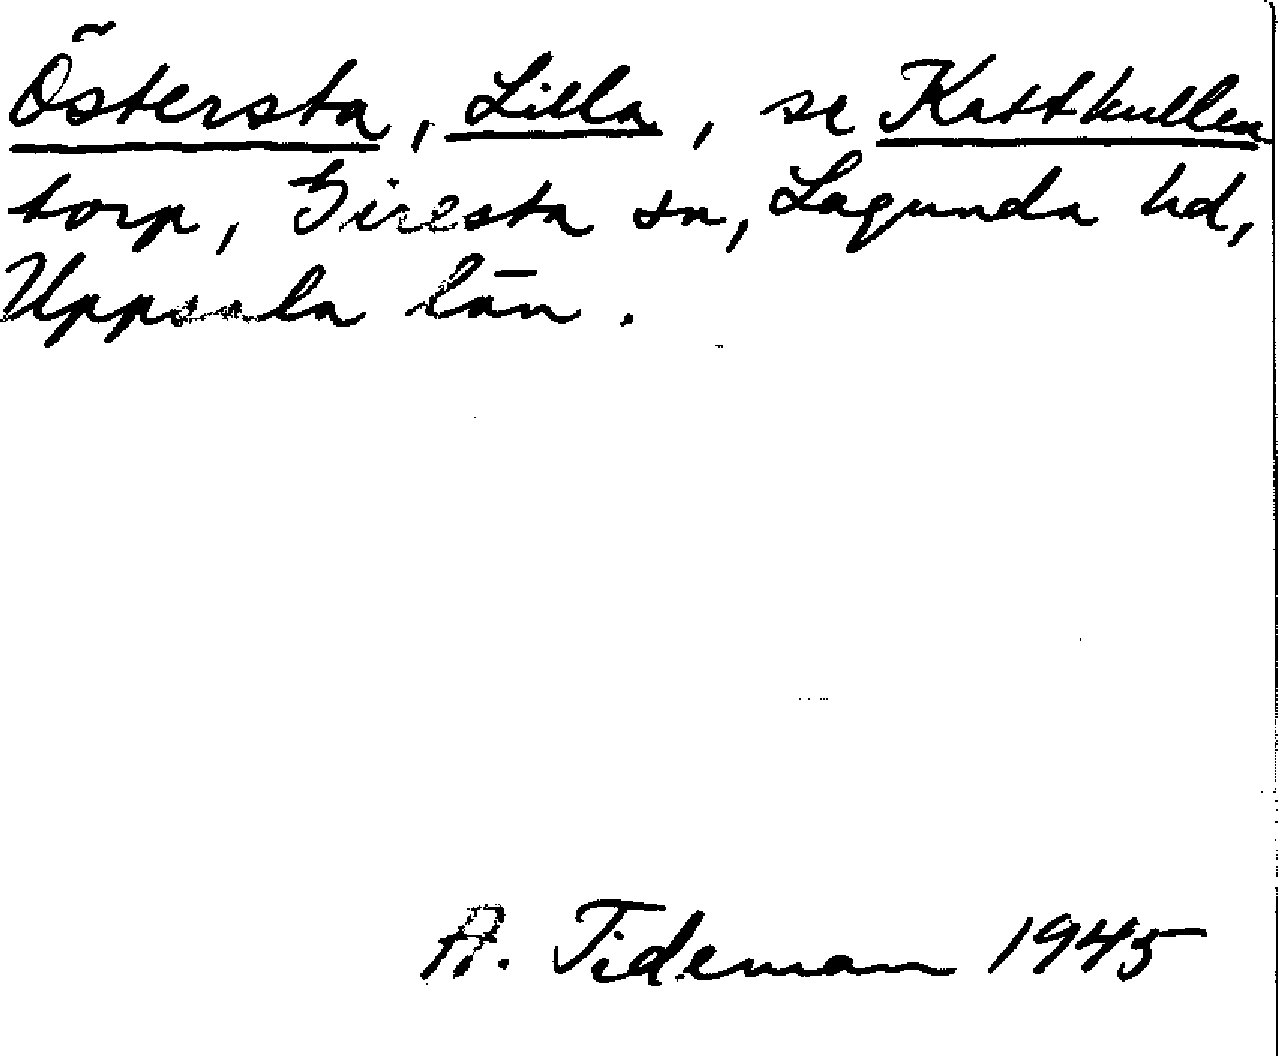 Östersta, Lilla, se Kattkullen
torp, Giresta sn, Lagunda hd,
Uppsala län.
A. Tideman 1945